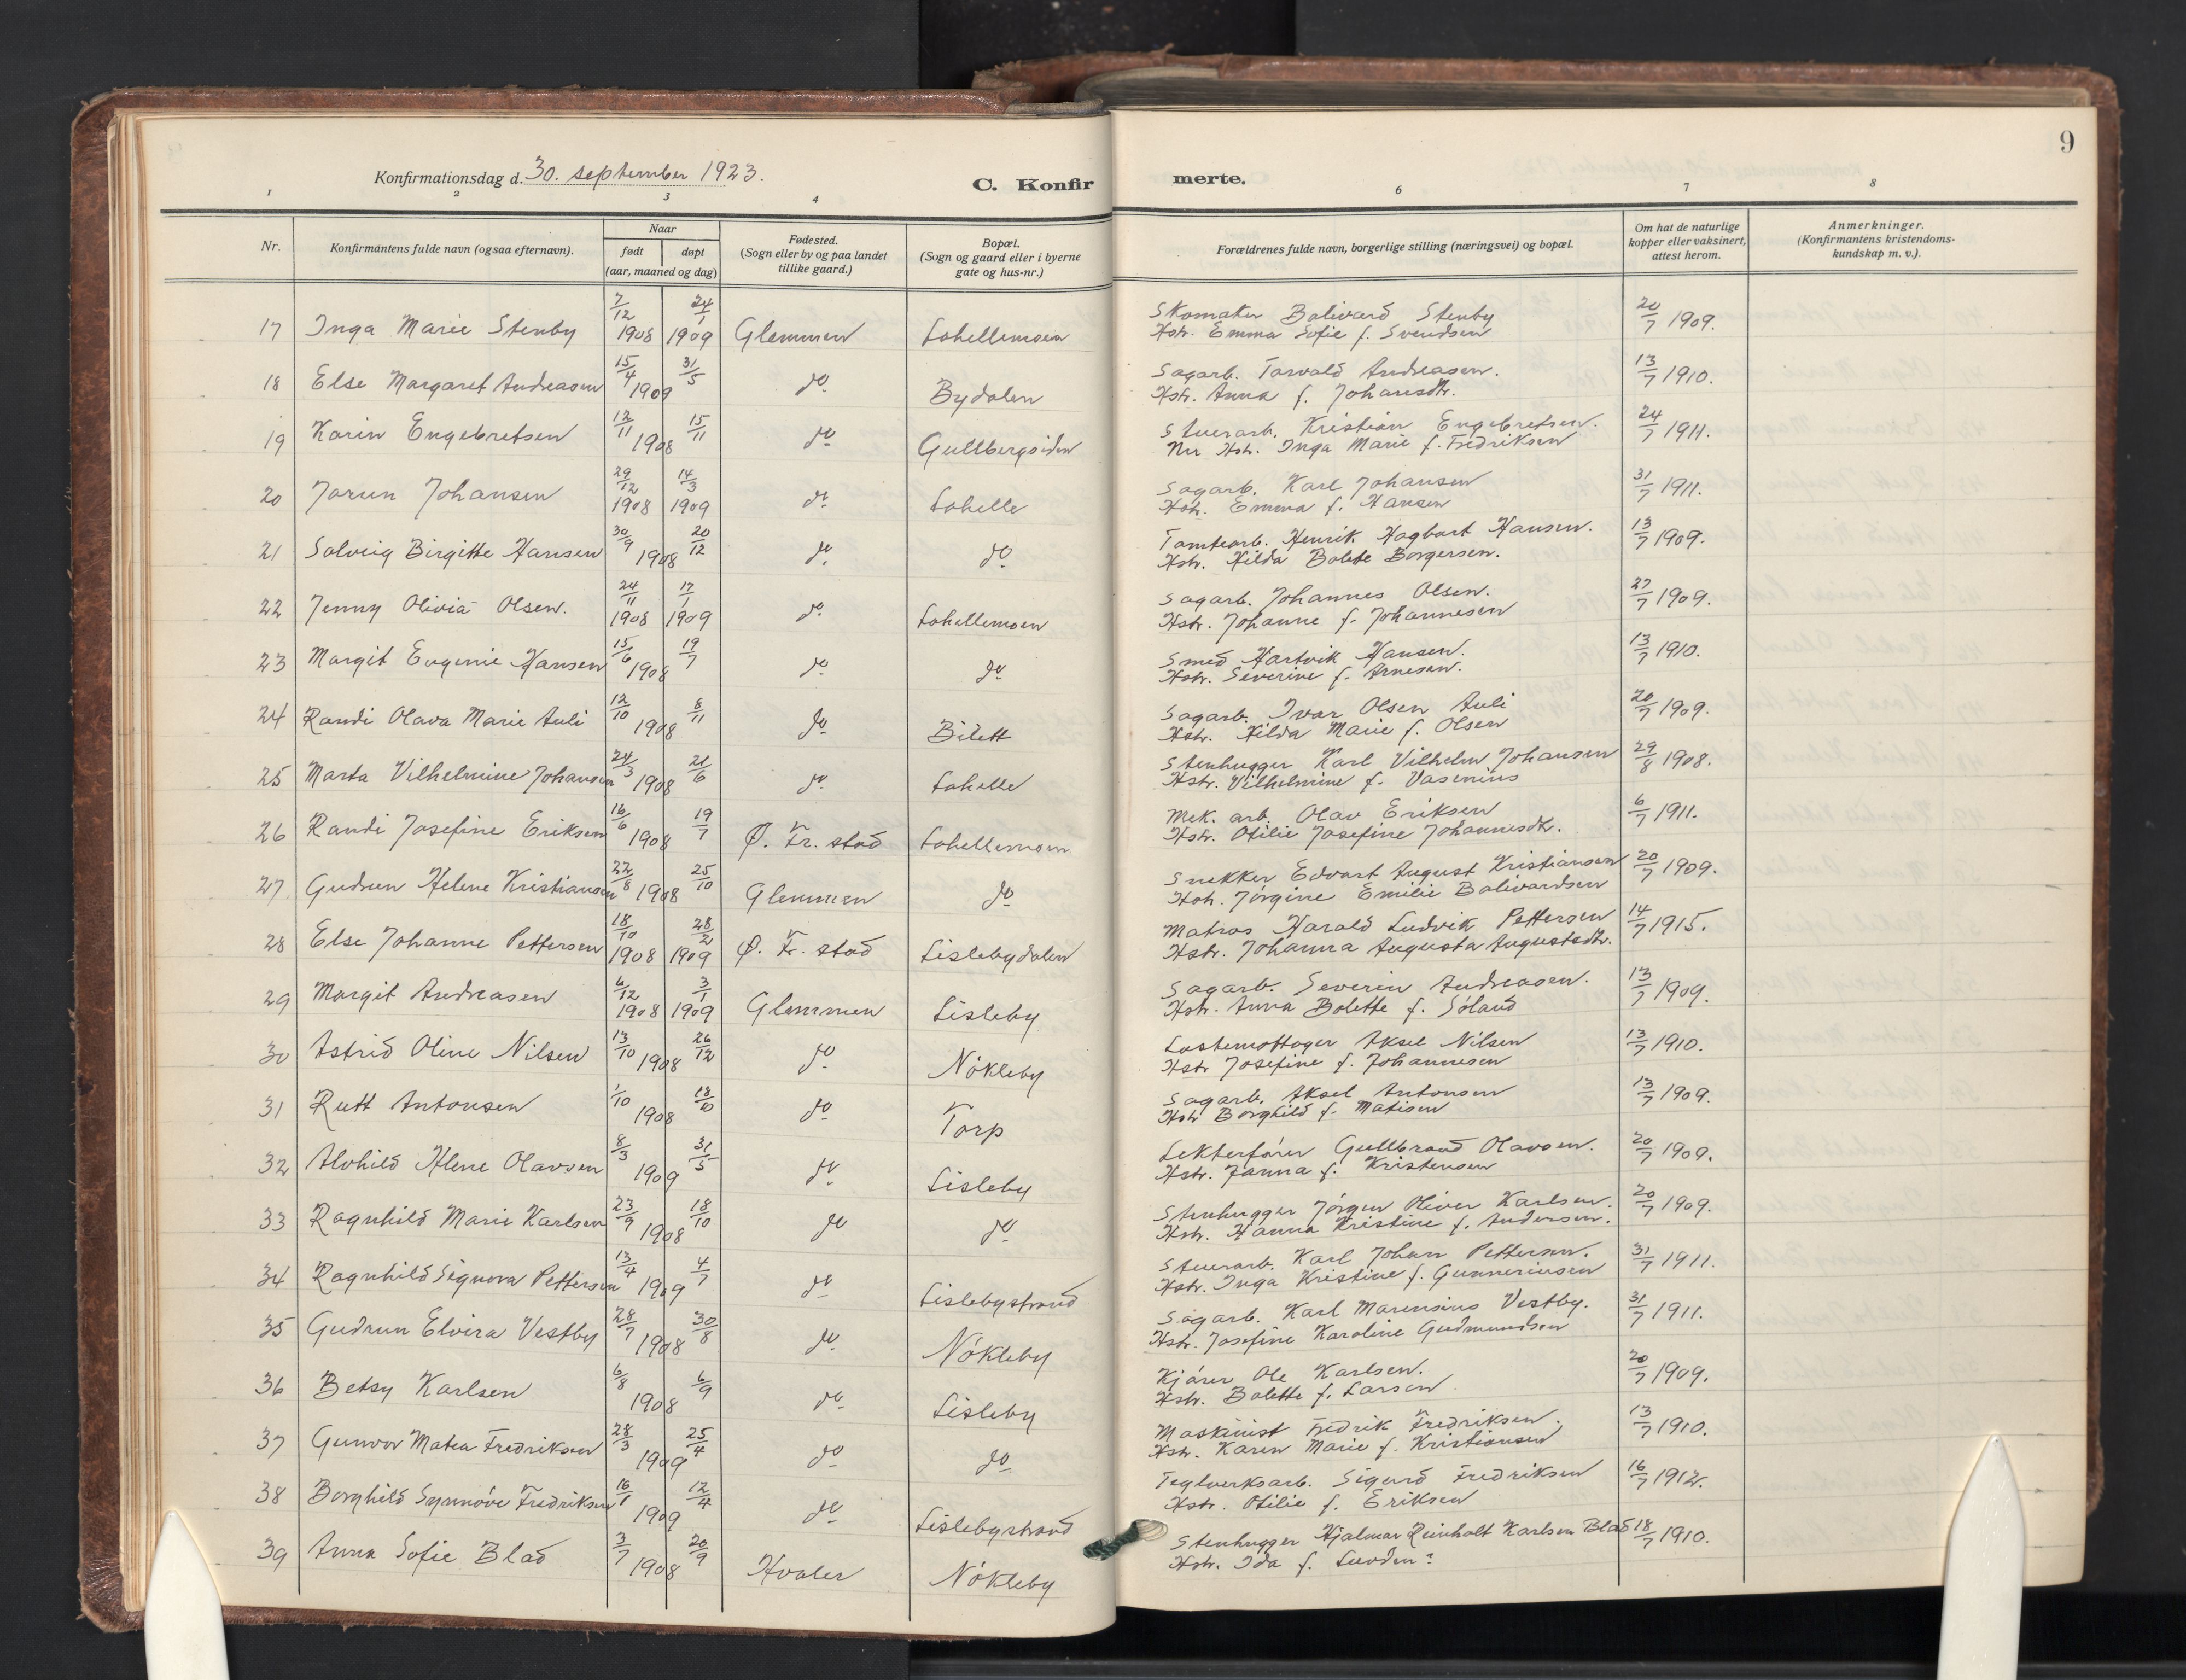 9
Konfirmationsdag d. 30. september 1923.
C. Konfirmerte.
1 2 3 4 6 7 8
Nr. Konfirmantens fulde navn (ogsaa efternavn). Naar født døpt (aar, maaned og dag) Fødested. (Sogn eller by og paa landet tillike gaard.) Bopæl. (Sogn og gaard eller i byerne gate og hus-nr.) Forældrenes fulde navn, borgerlige stilling (næringsvei) og bopæl. Om hat de naturlige kopper eller vaksinert, attest herom. Anmerkninger. (Konfirmantens kristendomskundskap m. v.).
17 Inga Marie Stenby 7/12 1908 24/1 1909 Glemmen Lahellemoen Skomaker Bolivard Stenby 20/7 1909.
Hstr. Emma Sofie f. Svendsen
18 Else Margaret Andreasen 15/4 31/5 1909 do. Bydalen Sagarb. Torvald Andreasen. 13/7 1910.
Hstr. Anna f. Johansdtr.
19 Karin Engebretsen 12/11 15/11 1908 do Gullbergsiden Stuerarb. Kristian Engebretsen. 24/7 1911.
Nu Hstr. Inga Marie f. Fredriksen
20 Jorun Johansen 29/12 1908 14/3 1909 do. Lahelle Sagarb. Karl Johansen 31/7 1911.
Hstr. Emma f. Hansen
21 Solveig Birgitte Hansen 30/9 20/12 1908 do. do. Tomtearb. Henrik Hagbart Hansen. 13/7 1909.
Hstr. Hilda Bolette Borgersen.
22 Jenny Olivia Olsen. 24/11 1908 17/1 1909 do. Lahellemoen Sagarb. Johannes Olsen. 27/7 1909.
Hstr. Johanne f. Johannesen
23 Margit Eugenie Hansen 15/6 19/7 1908 do do Smed Hartvik Hansen. 13/7 1910.
Hstr. Severine f. Arnesen.
24 Randi Olava Marie Auli 12/10 8/11 1908 do Bilett Sagarb. Ivar Olsen Auli 20/7 1909.
Hstr. Hilda Marie f. Olsen
25 Marta Vilhelmine Johansen 24/3 21/6 1908 do. Lahelle Stenhugger Karl Vilhelm Johansen 29/8 1908.
Hstr. Vilhelmine f. Vasenius
26 Randi Josefine Eriksen 16/6 19/7 1908 Ø. Fr. stad Lahellemoen Mek. arb. Olav Eriksen 6/7 1911.
Hstr. Otilie Josefine Johannesdtr.
27 Gudrun Helene Kristiansen 22/8 25/10 1908 Glemmen do Snekker Edvart August Kristiansen 20/7 1909.
Hstr. Jørgine Emilie Bolivardsen
28 Else Johanne Pettersen 18/10 1908 28/2 1909 Ø. Fr. stad Lislebydalen Matros Harald Ludvik Pettersen 14/7 1915.
Hstr. Johanna Augusta Augustsdtr.
29 Margit Andreasen 6/12 1908 3/1 1909 Glemmen Lisleby Sagarb. Severin Andreasen. 13/7 1909.
Hstr. Anna Bolette f. Søland
30 Astrid Oline Nilsen 13/10 26/12 1908 do Nøkleby Lastemottager Aksel Nilsen 13/7 1910.
Hstr Josefine f. Johannesen
31 Rutt Antonsen 1/10 18/10 1908 do Torp Sagarb. Aksel Antonsen 13/7 1909.
Hstr Borghild f. Matisen
32 Alvhild Helene Olavsen 8/3 31/5 1909 do Lisleby Lekterfører Gullbrand Olavsen. 20/7 1909.
Hstr. Janna f. Kristensen
33 Ragnhild Marie Karlsen 23/9 18/10 1908 do do Stenhugger Jörgen Oliver Karlsen. 20/7 1909.
Hstr. Hanna Kristine f. Andersen.
34 Ragnhild Signora Pettersen 13/4 4/7 1909 do Lislebystrand Stuerarb. Karl Johan Pettersen. 31/7 1911.
Hstr. Inga Kristine f. Gunneriusen
35 Gudrun Elvira Vestby 28/7 30/8 1908 do. Nøkleby Sagarb. Karl Marensius Vestby. 31/7 1911.
Hstr. Josefine Karoline Gudmundsen
36 Betsy Karlsen 6/8 6/9 1908 do Lisleby Kjörer Ole Karlsen. 20/7 1909.
Hstr. Bolette f. Larsen
37 Gunvor Matea Fredriksen 28/3 25/4 1909 do do Maskinist Fredrik Fredriksen. 13/7 1910.
Hstr. Karen Marie f. Kristiansen
38 Borghild Synnöve Fredriksen 16/1 12/4 1909 do Lislebystrand Teglverksarb. Sigurd Fredriksen 16/7 1912.
Hstr. Otilie f. Eriksen
39 Anna Sofie Blad 3/7 20/9 1908 Hvaler Nøkleby Stenhugger Hjalmar Reinholt Karlsen Blad 18/7 1910.
Hstr. Ida f. Lunden?